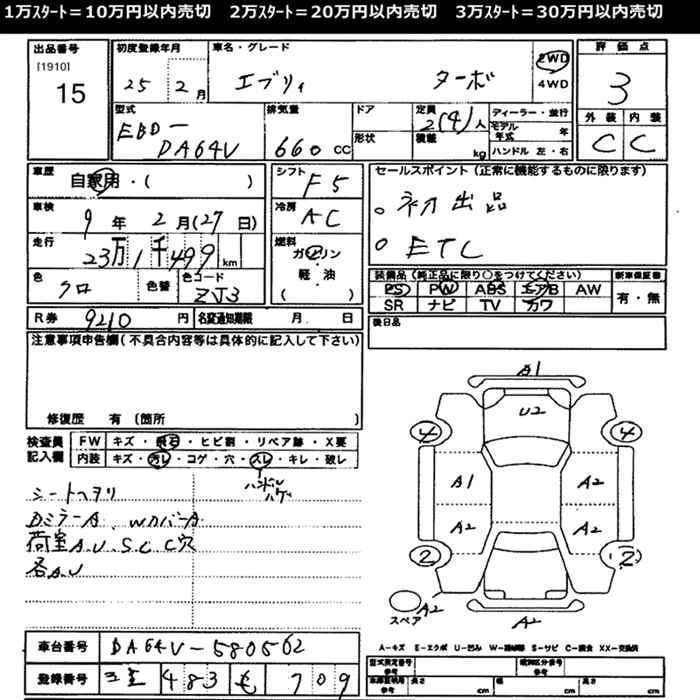 1万ｽﾀｰﾄ＝10万円以内売切　2万ｽﾀｰﾄ＝20万円以内売切　3万ｽﾀｰﾄ＝30万円以内売切
出品番号
[1910]
15
初度登録年月
25 2月
車名・グレード
エブリィ ターボ
2WD
4WD
評価点
3
外装 内装
C C
型式
EBD-
DA64V
排気量
660 CC
ドア
形状
定員
2(4)人
積載
kg
ディーラー・並行
モデル年式 年
ハンドル 左・右
車歴
自家用・( )
車検
9年 2月(27日)
走行
23万1千499km
色
クロ
色替
色コード
ZJ3
シフト
F5
冷房
AC
燃料
ガソリン
・
軽・油
( )
セールスポイント（正常に機能するものに限ります）
○ 初出品
○ ETC
装備品（純正品に限り○をつけてください）
PS PW ABS エアB AW
SR ナビ TV カワ
新車保証書
有・無
R券 9210円
名変通知期限 月 日
後日品
注意事項申告欄（不具合内容等は具体的に記入して下さい）
修復歴 有（箇所 ）
検査員
記入欄
FW キズ・飛石・ヒビ割・リペア跡・X要
内装 キズ・汚レ・コゲ・穴・スレ・キレ・破レ
ハンドル
シートヘタリ
Dミラー A、Wカバー A
荷室A.U.S.C.C穴
各A.U
A1
U2
4 4
A1 A2
A2 A2
2 2
スペア
A2
A2
A-キズ E-エクボ U-凹み W-補修跡 S-サビ C-腐食 XX-交換済
車台番号 DA64V-580562
登録番号 三重 483 も 709
型式指定番号
参考
類別区分番号
参考
車庫証明用
参考
長さ cm 幅 cm 高さ cm